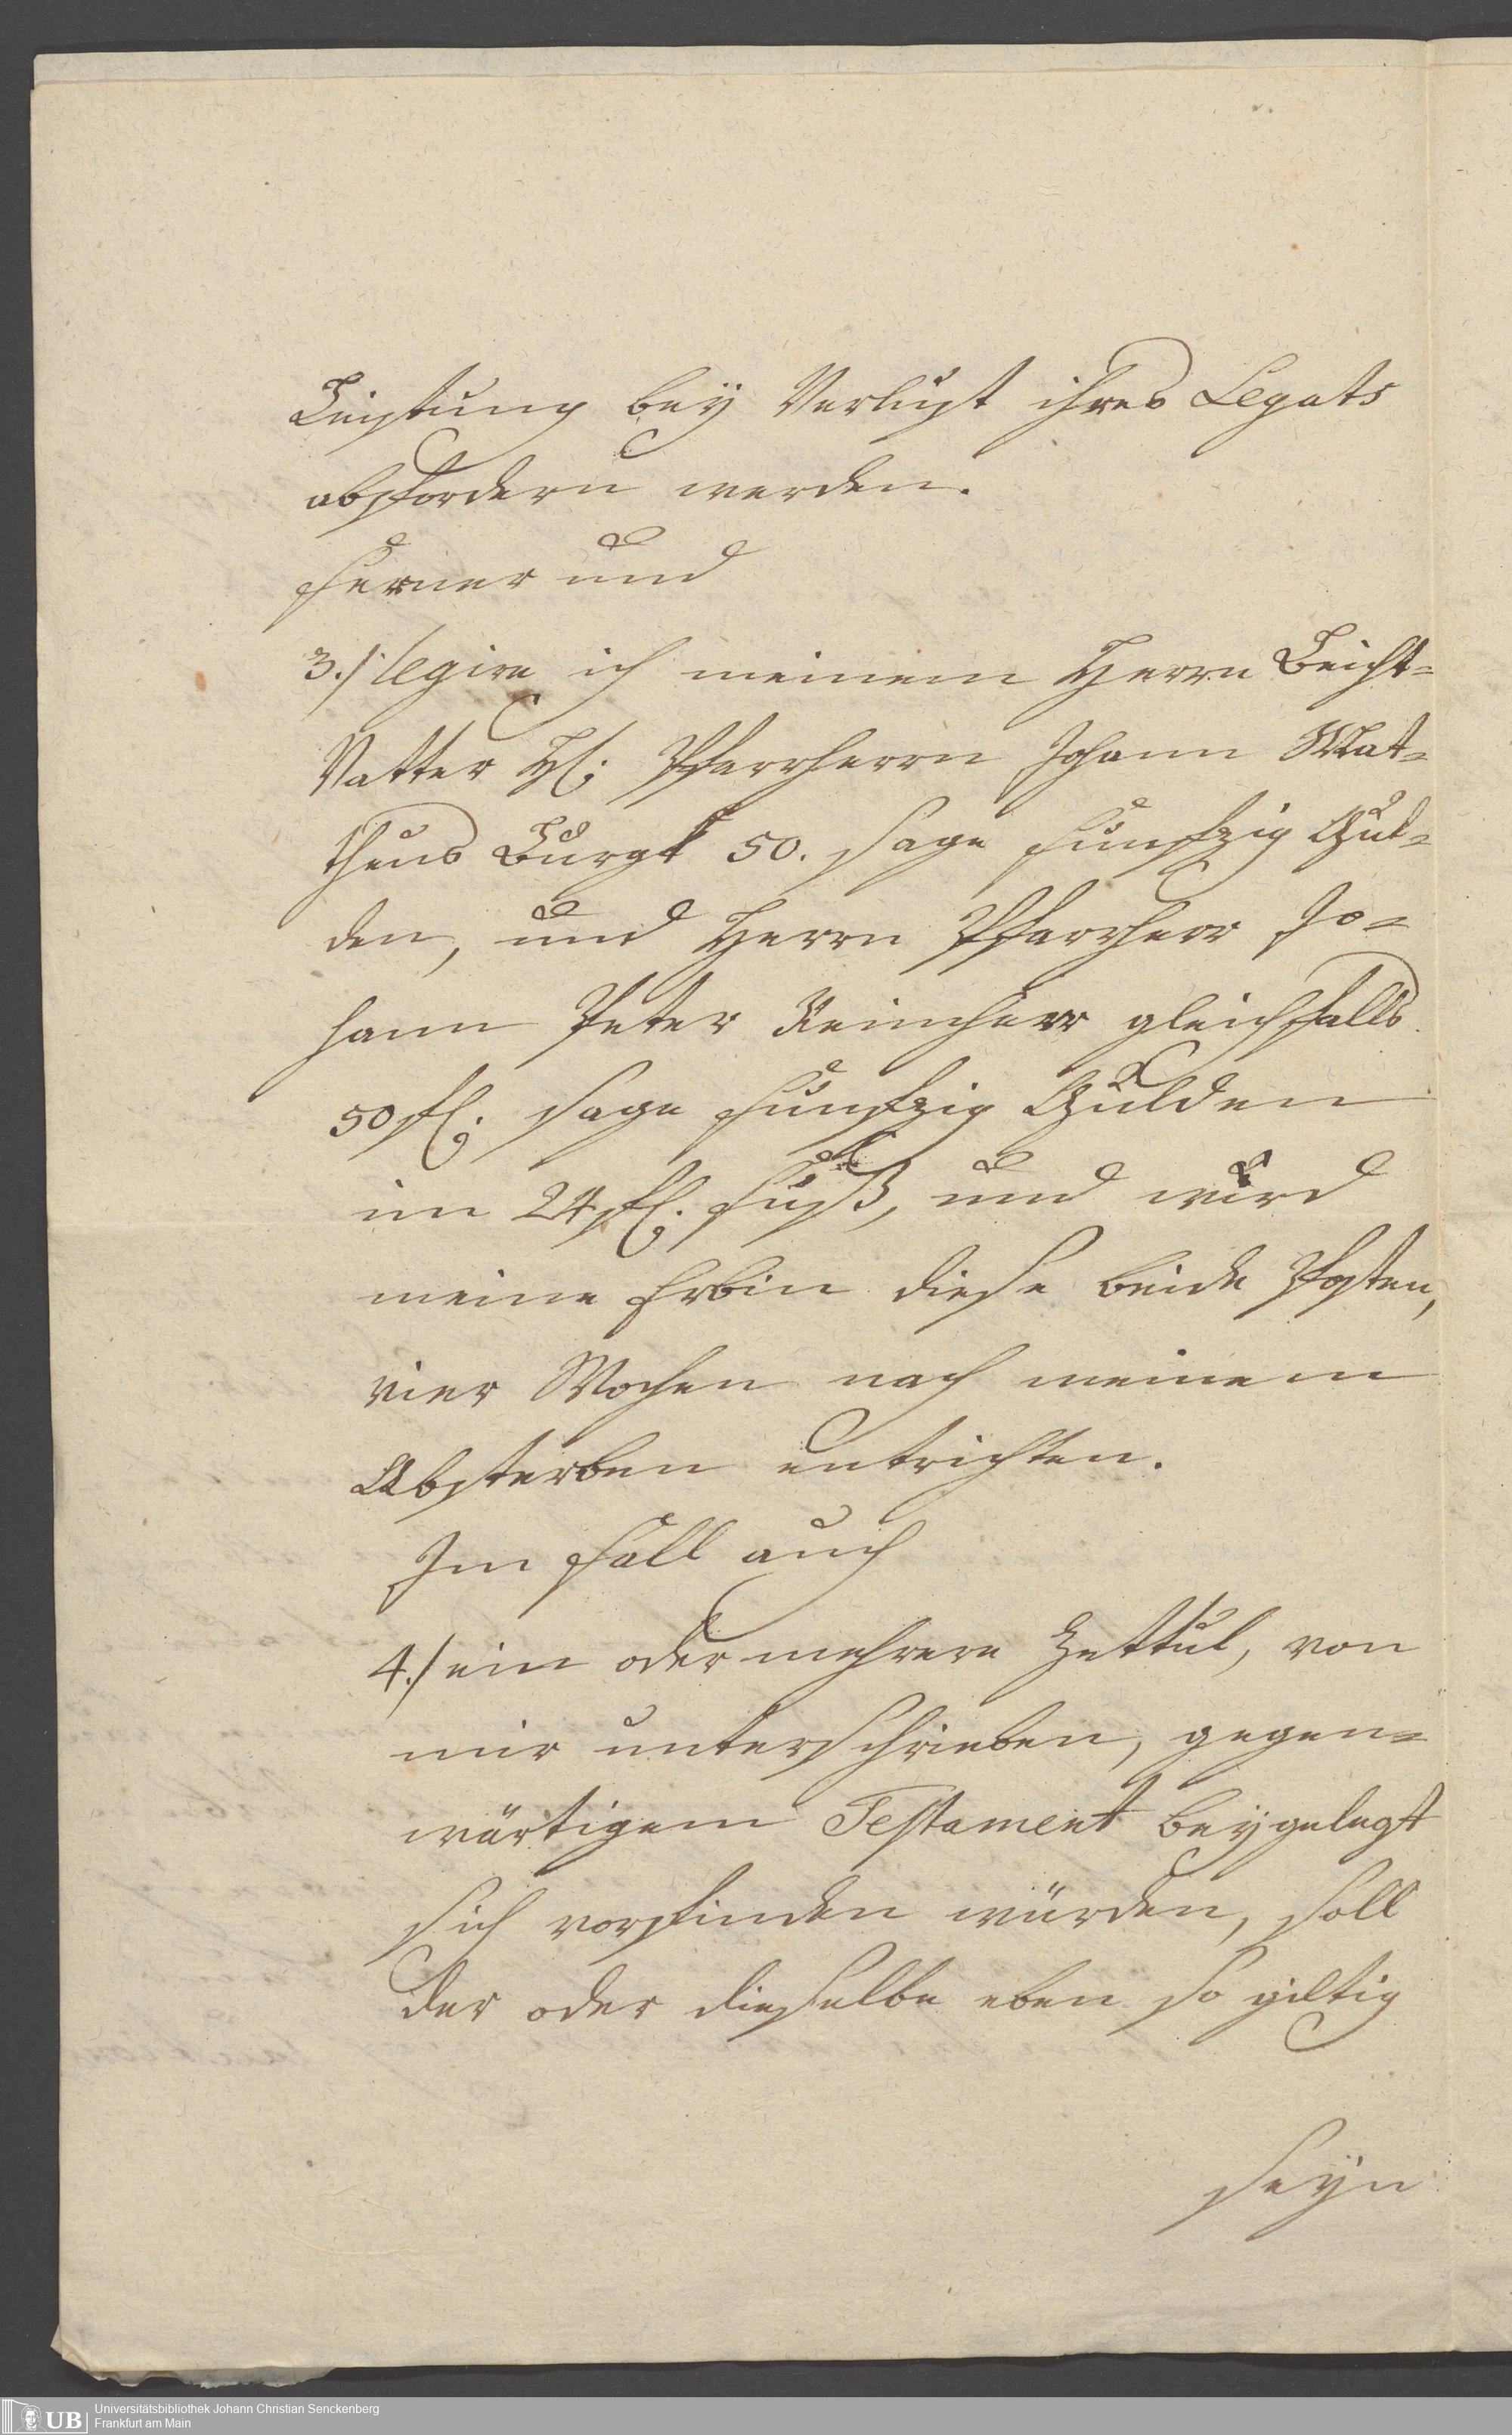 Leistung bey Verlust ihres Legats
abfordern werden.
ferner und
3./ legire ich meinem Herrn Beicht=
Vatter H: Pfarrherrn Johann Mat=
theus Burgk 50. sage funfzig Gul=
den, und Herrn Pfarrherr Jo=
hann Peter Reincherr gleichfalls
50 fl. sage funfzig Gulden
im 24 fl. fuß, und wird
meine Erbin diese beide Posten,
vier Wochen nach meinem
Absterben entrichten.
Im fall auch
4./ ein oder mehrere Zettul, von
mir unterschrieben, gegen=
wärtigem Testament beygelegt
sich vorfinden würden, soll
der oder dieselbe eben so giltig
seyn
UB
Universitätsbibliothek Johann Christian Senckenberg
Frankfurt am Main